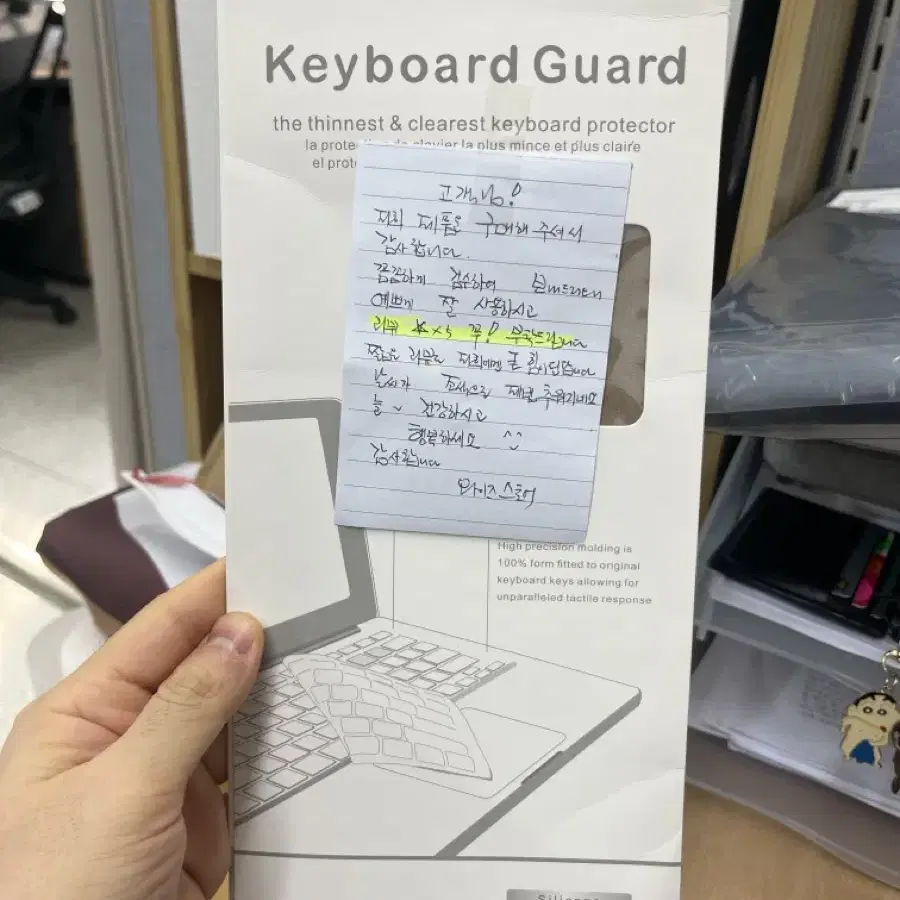 Keyboard Guard
the thinnest & clearest keyboard protector
la protection de clavier la plus mince et plus claire
el prote
고객님!
저희 제품을 구매해 주셔서
감사합니다.
꼼꼼하게 검수하여
예쁘게 잘 사용하시고
리뷰 ★×5 꾹! 부탁드립니다
짧은 리뷰도 저희에겐 큰 힘이 된답니다
날씨가 조석으로 제법 추워지네요
늘~ 건강하시고
행복하세요 ^^
감사합니다
와이즈스토어
High precision molding is
100% form fitted to original
keyboard keys allowing for
unparalleled tactile response